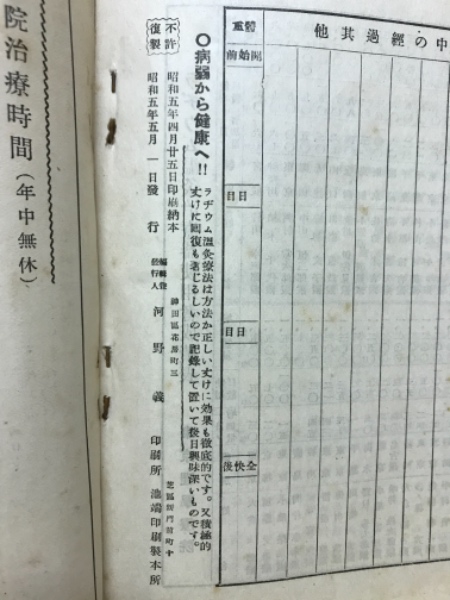 中の經過其他
體重
開始前
日目
日目
全快後
〇病弱から健康へ!!
ラヂウム溫灸療法は方法が正しい丈けに効果も徹底的です。又積極的
丈けに回復も著じるしいので記錄して置いて後日興味深いものです。
昭和五年四月廿五日印刷納本
昭和五年五月一日發行
不許複製
神田區花房町三
編輯兼發行人 河野義
印刷所 池端印刷製本所
院治療時間(年中無休)